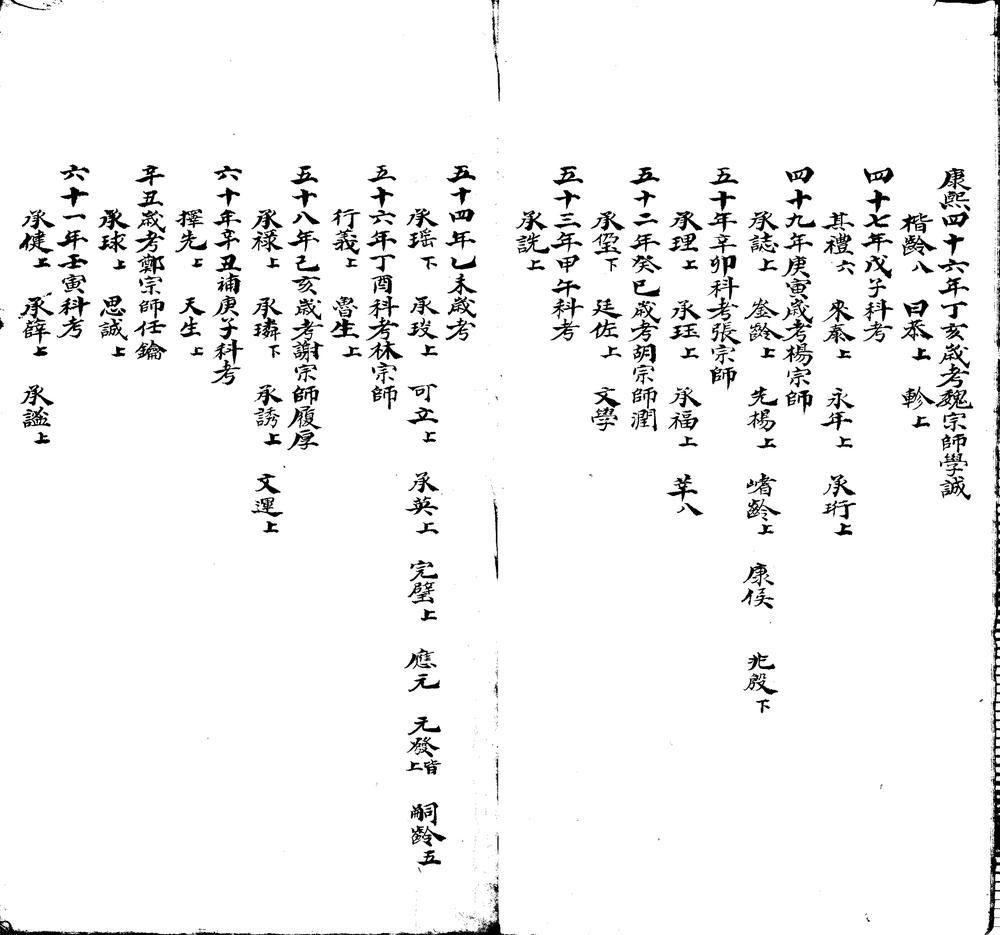 康熙四十六年丁亥歲考魏宗師學誠
楷齡八 曰泰上 軫上
四十七年戊子科考
其禮六 來泰上 永年上 承珩上
四十九年庚寅歲考楊宗師
承誌上 崟齡上 先楊上 嵴齡上 康侯 兆殷下
五十年辛卯科考張宗師
承理上 承玨上 承福上 莘八
五十二年癸巳歲考胡宗師潤
承 下 廷佐上 文學
五十三年甲午科考
承詵上
五十四年乙未歲考
承瑶下 承玫上 可立上 承英上 完璧上 應元 元發皆上 嗣齡五
五十六年丁酉科考林宗師
行義上 魯生上
五十八年己亥歲考謝宗師履厚
承祿上 承璘下 承誘上 文運上
六十年辛丑補庚子科考
擇先上 天生上
辛丑歲考鄭宗師任鑰
承球上 思誠上
六十一年壬寅科考
承健上 承薛上 承謚上